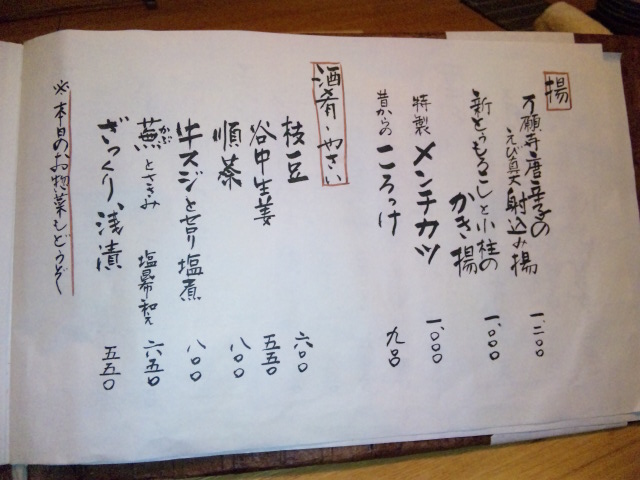 揚
万願寺唐辛子の
えび真丈射込み揚 一、二〇〇
新とうもろこしと小柱の
かき揚 一、〇〇〇
特製 メンチカツ 一、〇〇〇
昔からの ころっけ 九〇〇
酒肴・やさい
枝豆 六〇〇
谷中生姜 五五〇
順茶 八〇〇
牛スジとセロリ塩煮 八〇〇
蕪とささみ 塩昆布和え 六五〇
かぶ
ざっくり浅漬 五五〇
※本日のお惣菜もどうぞ